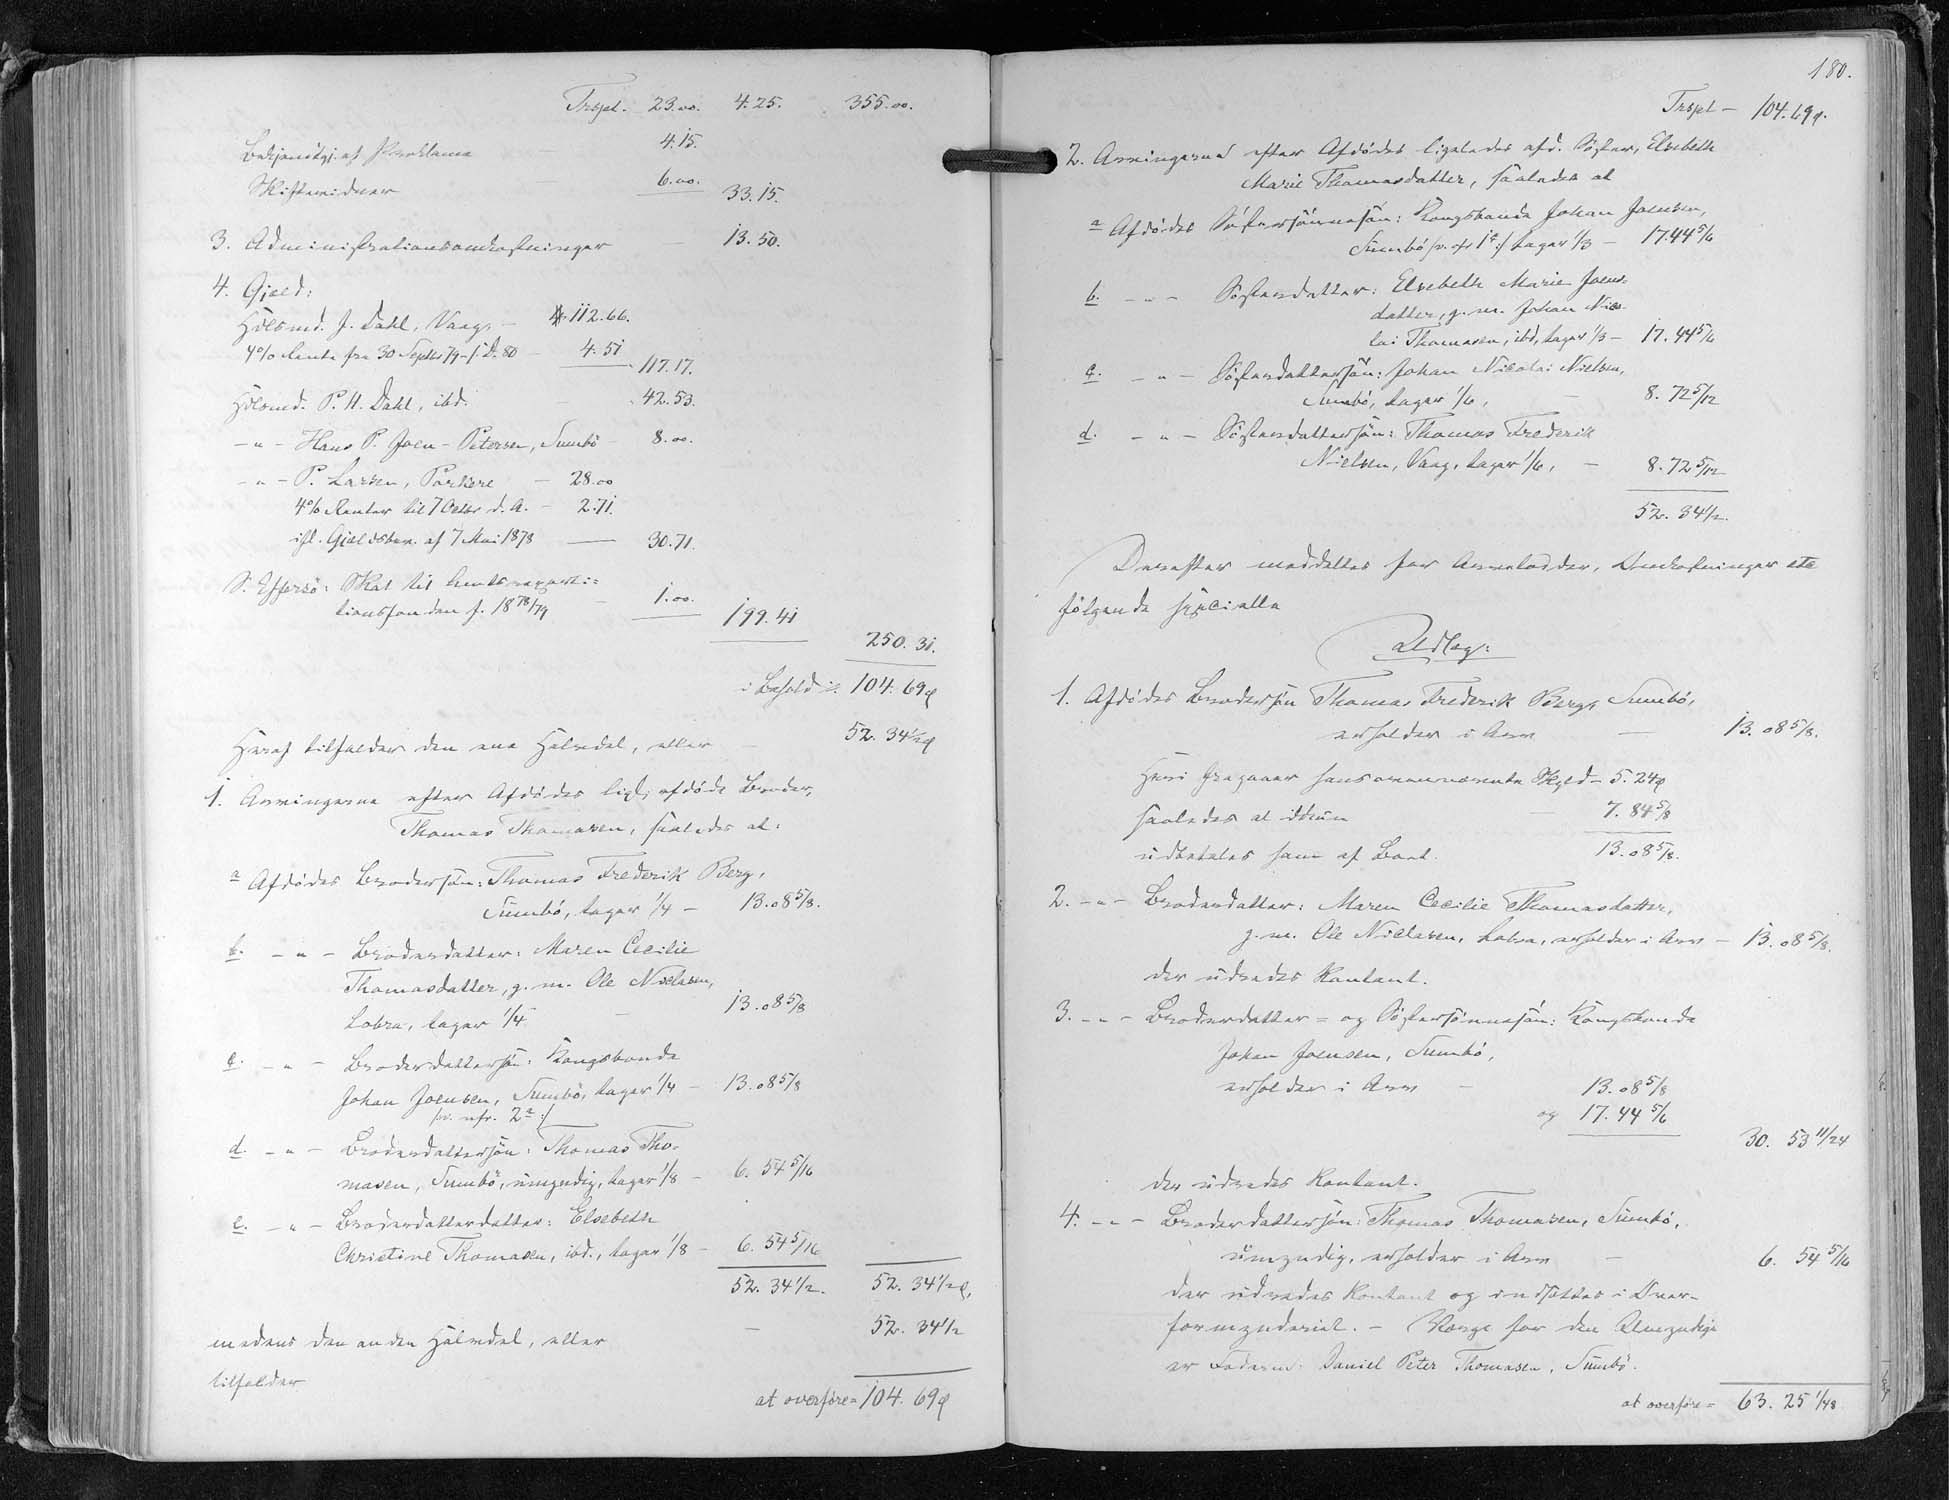 Trspt. 23.00. 4.25. 355.00.
Bekjendtgj. af Proklama - 4.15.
Skiftevidner - 6.00. 33.15.
3. Administrationsomkostninger - 13.50.
4. Gjæld:
Hdlsmd. J. Dahl, Vaag, - 112.66.
4% Rente fra 30 Septbr 79 - - 80 - 4.51
117.17.
Hdlsmd. P. H. Dahl, ibd. - 42.53.
-"- Hans P. Joen-Petersen, Sumbö - 8.00.
-"- P. Larsen, Porkere - 28.00
4% Renter til 7 Octbr d. A. - 2.71.
ifl. Gjældsbev. af 7 Mai 1878 - 30.71.
S. Effersö: Skat til Amtsreparti=
tionsfonden f. 1878/79 - 1.00. 199.41
250.31.
i Behold 104.69
Heraf tilfalder den ene Halvdel, eller - 52.34½
1. Arvingerne efter Afdödes ligl. afdöde Broder,
Thomas Thomasen, saaledes at:
a Afdödes Brodersön: Thomas Frederik Berg,
Sumbö, tager 1/4 - 13.08 5/8.
b. -"- Broderdatter: Maren Cecilie
Thomasdatter, g. m. Ole Niclasen,
Lobra, tager 1/4 - 13.08 5/8
c. -"- Broderdattersön: Kongsbonde
Johan Joensen, Sumbö, tager 1/4 - 13.08 5/8
/: cfr. 2a :/
d. -"- Broderdattersön: Thomas Tho-
masen, Sumbö, umyndig, tager 1/8 - 6.54 5/16
e. -"- Broderdatterdatter: Elsebeth
Christine Thomasen, ibd., tager 1/8 - 6.54 5/16
52.34 1/2. 52.34 1/2
medens den anden Halvdel, eller - 52.34 1/2
tilfalder
at overföre = 104.69
180.
Trspt - 104.69
2. Arvingerne efter Afdödes ligeledes afd. Söster, Elsebeth
Marie Thomasdatter, saaledes at
a Afdödes Söstersönnesön: Kongsbonde Johan Joensen,
Sumbö /: cfr 1c :/ tager 1/3 - 17.44 5/6
b. -"- Sösterdatter: Elsebeth Marie Joens-
datter, g. m. Johan Nico-
lai Thomasen, ibd, tager 1/3 - 17.44 5/6
c. -"- Sösterdattersön: Johan Nicolai Nielsen,
Sumbö, tager 1/6, - 8.72 5/12
d. -"- Sösterdattersön: Thomas Frederik
Nielsen, Vaag, tager 1/6, - 8.72 5/12
52.34 1/2.
Derefter meddeltes for Arvelodder, Omkostninger etc
fölgende specielle
Udlæg:
1. Afdödes Brodersön Thomas Frederik Berg, Sumbö,
erholder i Arv - 13.08 5/8.
Heri fragaaer hans Skyld - 5.24
saaledes at - 7.84 5/8
udbetales ham af Boet. 13.08 5/8.
2. -"- Broderdatter: Maren Cecilie Thomasdatter,
g. m. Ole Niclasen, Lobra, erholder i Arv - 13.08 5/8.
der udredes kontant.
3. -"- Broderdatter= og Söstersönnesön: Kongsbonde
Johan Joensen, Sumbö,
erholder i Arv - 13.08 5/8
og 17.44 5/6
30.53 11/24
der udredes kontant.
4. -"- Broderdattersön: Thomas Thomasen, Sumbö,
umyndig, erholder i Arv - 6.54 5/16
der udredes kontant og indsættes i Over-
formynderiet. - Værge for den Umyndige
er Faderen: Daniel Peter Thomasen, Sumbö.
at overföre = 63.25 1/48